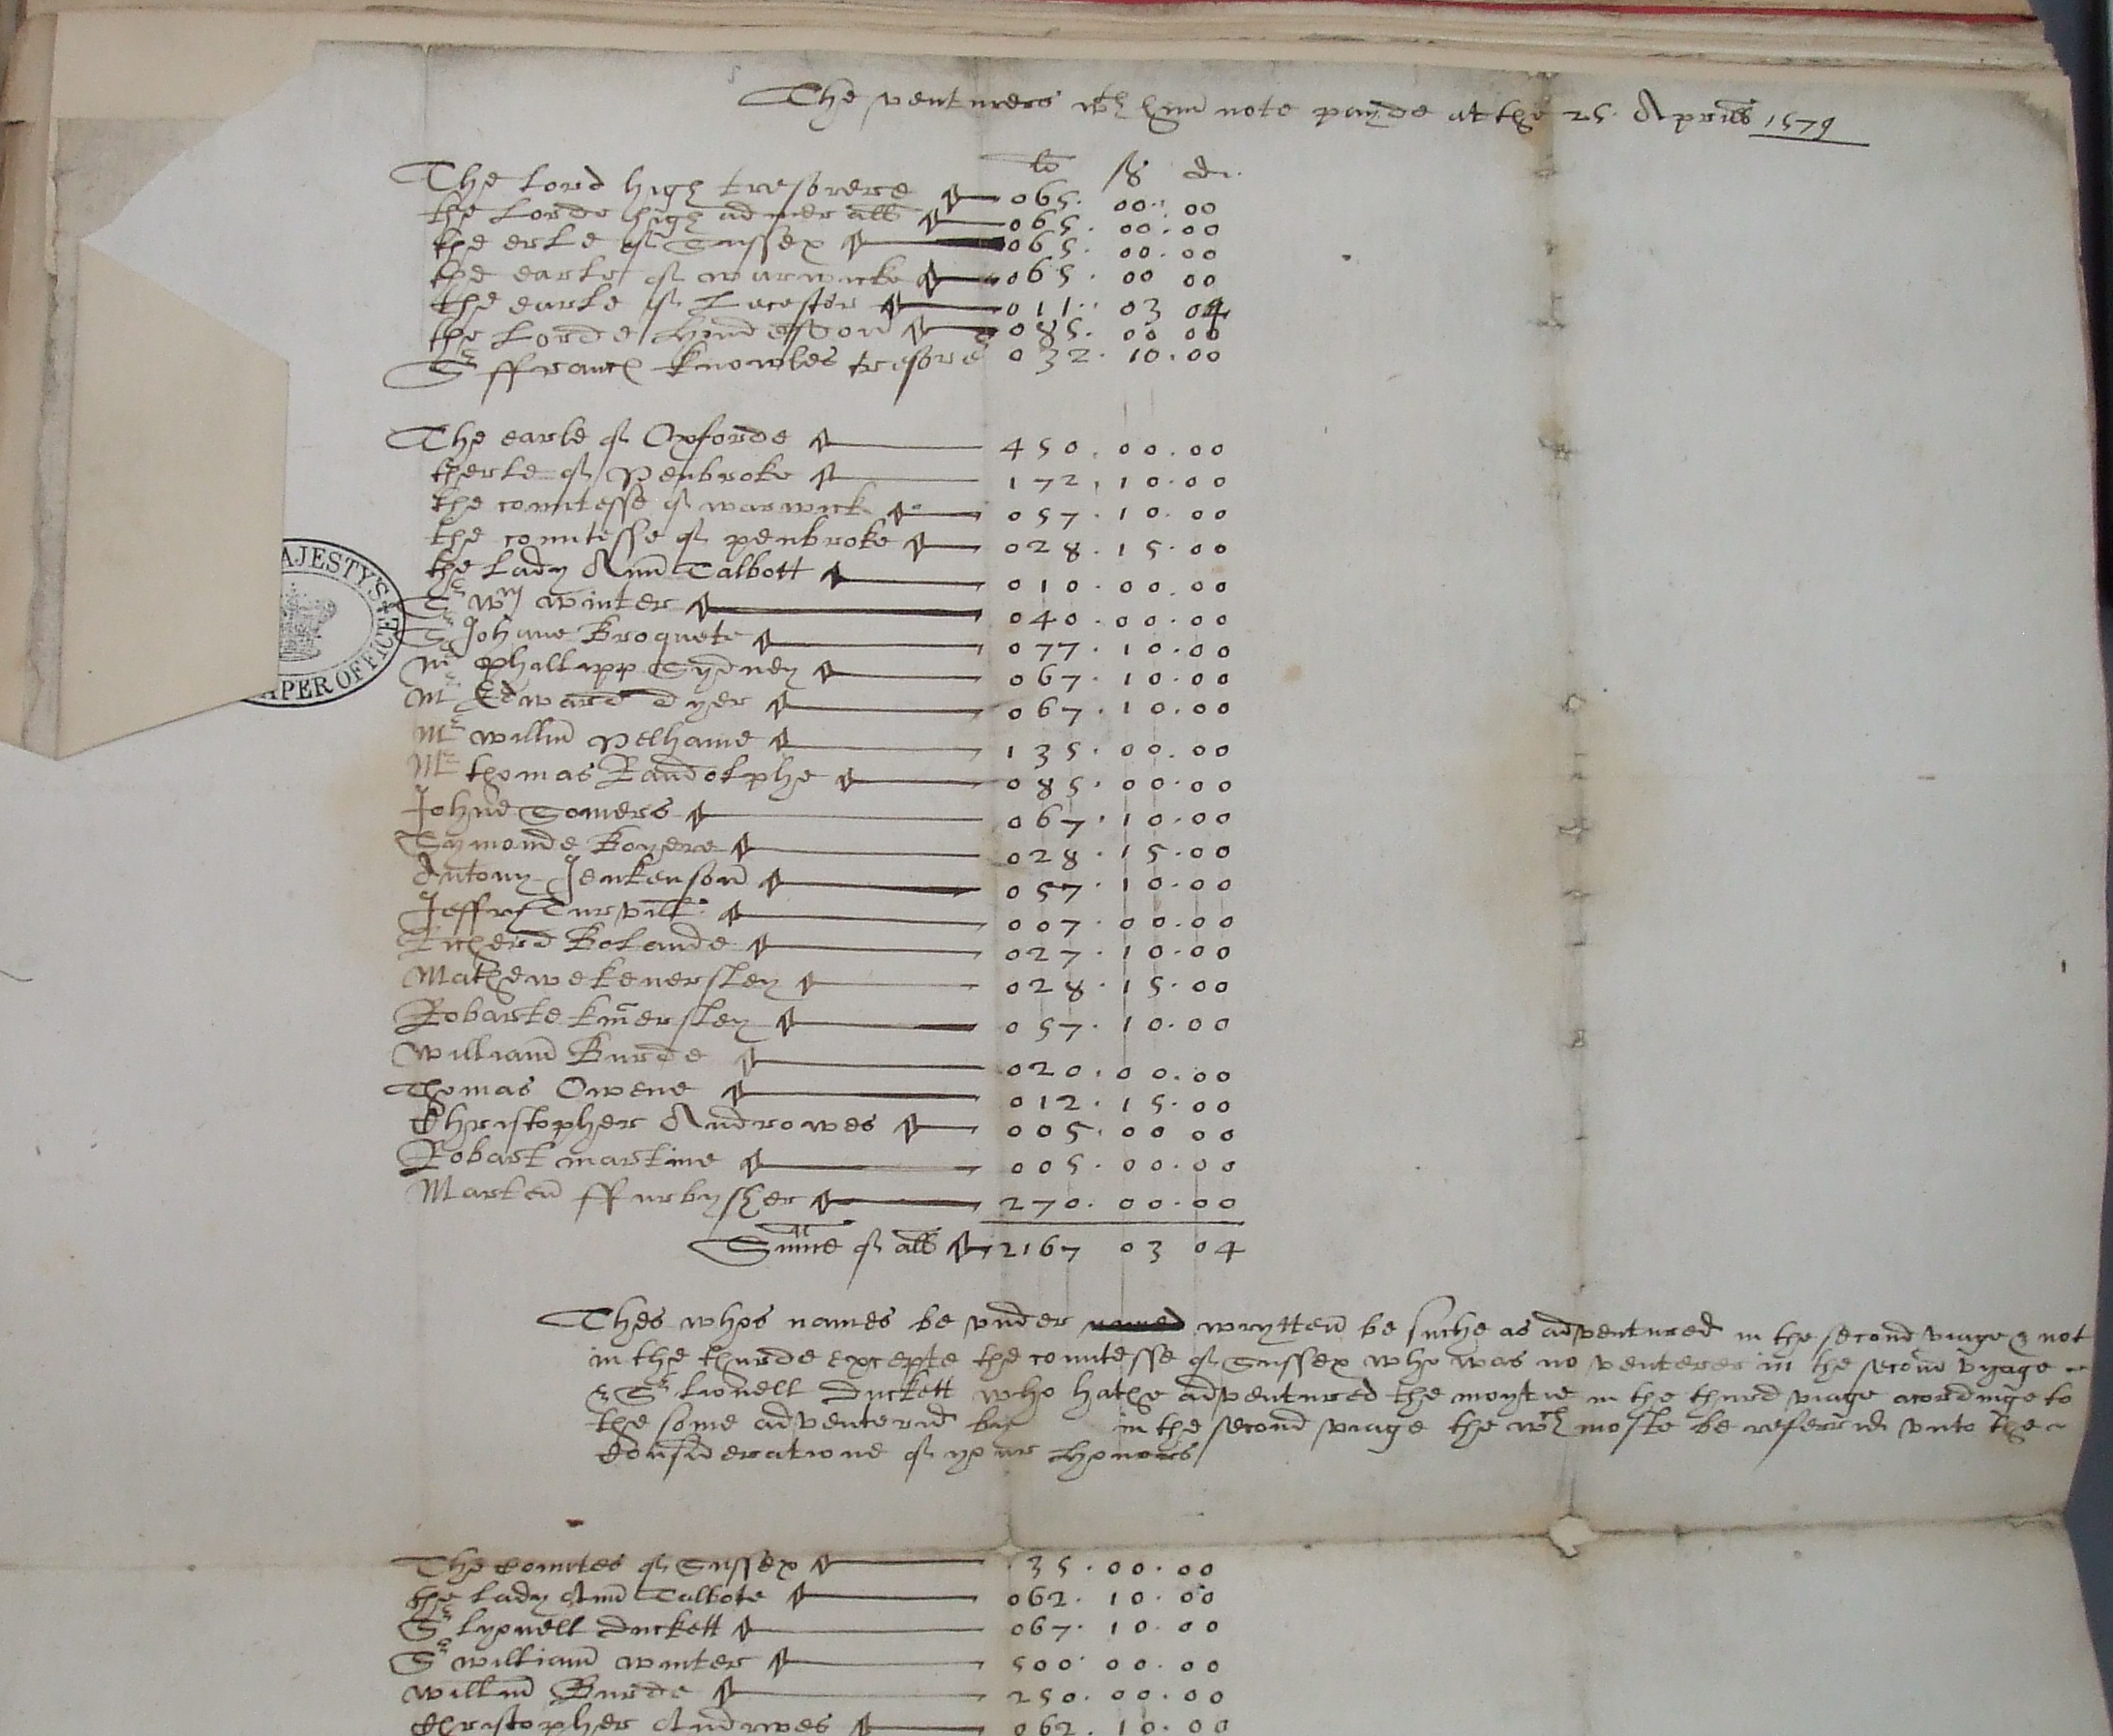 The venturers wch have note payde at the 25 Aprills 1579
li s d
The Lord high tresorere 065. 00. 00
the Lorde high admerall 065. 00. 00
the erle of Sussex 065. 00. 00
the earle of warwicke 065. 00 00
the earle of Lecester 011. 03 04
the Lorde Hundesdon 085. 00 00
Sr ffrancs knowles tresore 032. 10. 00
The earle of Oxforde 450. 00. 00
therle of Penbroke 172. 10. 00
the comtesse of warwick 057. 10. 00
the comtesse of penbroke 028. 15. 00
the Lady Ann Talbott 010. 00. 00
Sr Wm winter 040. 00. 00
Sr Johane Broquete 077. 10. 00
Mr Phillipp Sydney 067. 10. 00
Mr Edward dyer 067. 10. 00
Mr willm Pelhame 135. 00. 00
Mr thomas Randolphe 085. 00. 00
Johne Somers 067. 10. 00
Symonde Boyere 028. 15. 00
Antony Jenkenson 057. 10. 00
Jeffry Turvill 007. 00. 00
Richerd Bolande 027. 10. 00
Mathewe kenersley 028. 15. 00
Robarte kinersley 057. 10. 00
William Burde 020. 00. 00
Thomas Owene 012. 15. 00
Christopher Androwes 005. 00 00
Robart martine 005. 00. 00
Marten ffurbysher 270. 00. 00
Sume of all 2167 03 04
Thes whos names be under named wrytten be suche as adventured in the second viage & not
in the thurde excepte the comtesse of Sussex who was no venterer in the second vyage
& Sr Lionell Duckett who hathe adventured the moytie in the thurd viage acordinge to
the some adventerid by in the second viage the wch moste be referrid unto the
Consideratione of your Honors
The Comtes of Sussex 35. 00. 00
the Lady Ann Talbote 062. 10. 00
Sr Lyonell Duckett 067. 10. 00
Sr william winter 500 00. 00
willm Burde 250. 00. 00
Christopher Andrwes 062. 10. 00
AJESTY'S
APER OFFICE